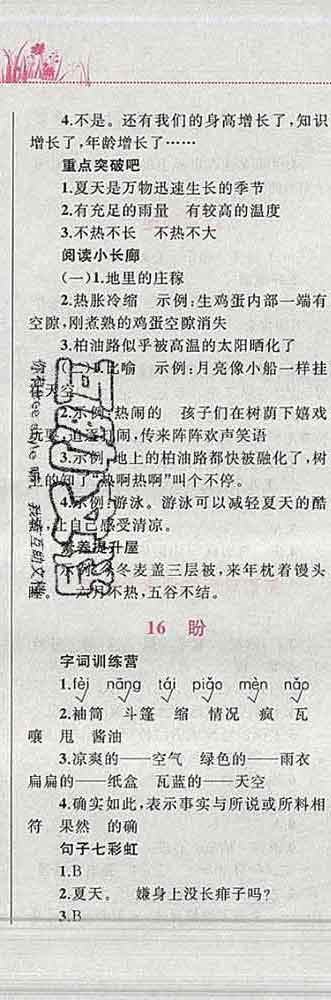 4.不是。还有我们的身高增长了,知识
增长了,年龄增长了……
重点突破吧
1.夏天是万物迅速生长的季节
2.有充足的雨量 有较高的温度
3.不热不长 不热不大
阅读小长廊
(一)1.地里的庄稼
2.热胀冷缩 示例:生鸡蛋内部一端有
空隙,刚煮熟的鸡蛋空隙消失
3.柏油路似乎被高温的太阳晒化了
喻 示例:月亮像小船一样挂
天空
2.示例:热闹的 孩子们在树荫下嬉戏
闹,传来阵阵欢声笑语
3.示例:地上的柏油路都快被融化了,树
上的知了“热啊热啊”叫个不停。
4.示例:游泳。游泳可以减轻夏天的酷
,让自己感受清凉。
升屋
冬麦盖三层被,来年枕着馒头
不热,五谷不结。
16 盼
字词训练营
1.fèi nāng tái piǎo mèn nǎo
2.袖筒 斗篷 缩 情况 疯 瓦
嚷 甩 酱油
3.凉爽的——空气 绿色的——雨衣
扁扁的——纸盒 瓦蓝的——天空
4.确实如此,表示事实与所说或所料相
符 果然 的确
句子七彩虹
1.B
2.夏天。 嫌身上没长痱子吗?
3.B